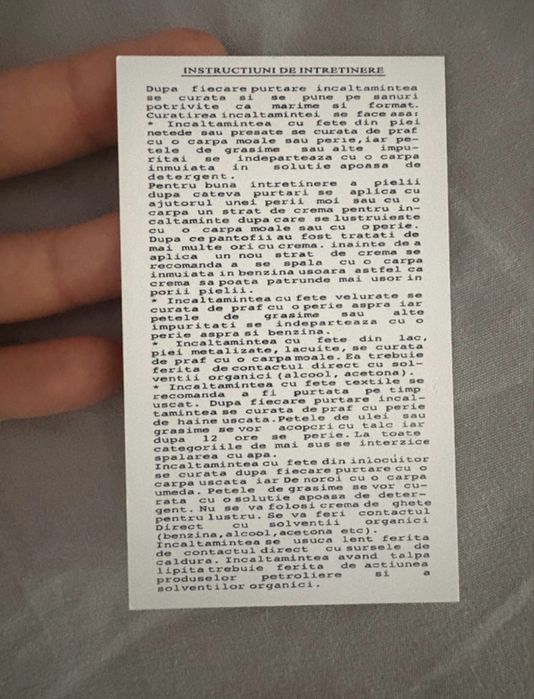 INSTRUCTIUNI DE INTRETINERE
Dupa fiecare purtare incaltamintea
se curata si se pune pe sanuri
potrivite ca marime si format.
Curatirea incaltamintei se face asa:
* Incaltamintea cu fete din piei
netede sau presate se curata de praf
cu o carpa moale sau perie, iar pe-
tele de grasime sau alte impu-
ritai se indeparteaza cu o carpa
inmuiata in solutie apoasa de
detergent.
Pentru buna intretinere a pielii
dupa cateva purtari se aplica cu
ajutorul unei perii moi sau cu o
carpa un strat de crema pentru in-
caltaminte dupa care se lustruieste
cu o carpa moale sau cu o perie.
Dupa ce pantofii au fost tratati de
mai multe ori cu crema. inainte de a
aplica un nou strat de crema se
recomanda a se spala cu o carpa
inmuiata in benzina usoara astfel ca
crema sa poata patrunde mai usor in
porii pielii.
* Incaltamintea cu fete velurate se
curata de praf cu o perie aspra iar
petele de grasime sau alte
impuritati se indeparteaza cu o
perie aspra si benzina.
* Incaltamintea cu fete din lac,
piei metalizate, lacuite, se curata
de praf cu o carpa moale. Ea trebuie
ferita de contactul direct cu sol-
ventii organici (alcool, acetona).
* Incaltamintea cu fete textile se
recomanda a fi purtata pe timp
uscat. Dupa fiecare purtare incal-
tamintea se curata de praf cu perie
de haine uscata. Petele de ulei sau
grasime se vor acopcri cu talc iar
dupa 12 ore se perie. La toate
categoriile de mai sus se interzice
spalarea cu apa.
Incaltamintea cu fete din inlocuitor
se curata dupa fiecare purtare cu o
carpa uscata iar De noroi cu o carpa
umeda. Petele de grasime se vor cu-
rata cu o solutie apoasa de deter-
gent. Nu se va folosi crema de ghete
pentru lustru. Se va feri contactul
Direct cu solventii organici
(benzina, alcool, acetona etc).
Incaltamintea se usuca lent ferita
de contactul direct cu sursele de
caldura. Incaltamintea avand talpa
lipita trebuie ferita de actiunea
produselor petroliere si a
solventilor organici.